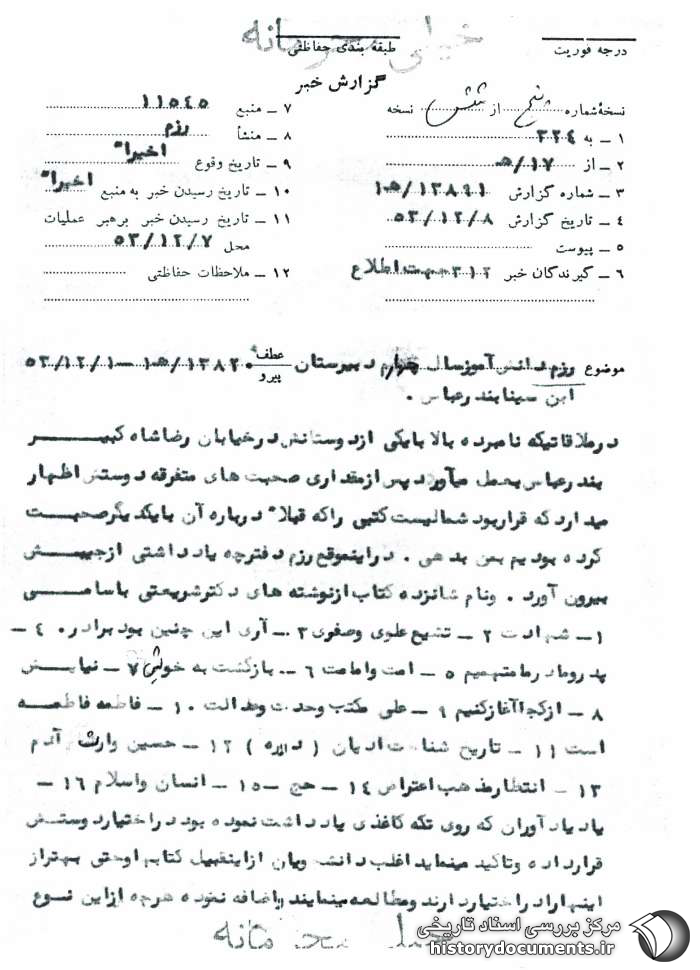 خیلی محرمانه
درجه فوریت
طبقه بندی حفاظتی
گزارش خبر
نسخهٔ شماره پنج از شش نسخه
۱ ـ به ۳۳۴
۲ ـ از ۱۷/ﻫ
۳ ـ شماره گزارش ۱۳۸۹۱/ﻫ۱
۴ ـ تاریخ گزارش ۵۳/۱۲/۸
۵ ـ پیوست
۶ ـ گیرندگان خبر ۳۱۲ جهت اطلاع
۷ ـ منبع ۱۱۵۴۵
۸ ـ منشأ رزم
۹ ـ تاریخ وقوع اخیرا"
۱۰ ـ تاریخ رسیدن خبر به منبع اخیرا"
۱۱ ـ تاریخ رسیدن خبر برهبر عملیات
محل ۵۳/۱۲/۷
۱۲ ـ ملاحظات حفاظتی
موضوع رزم دانش آموز سال چهارم دبیرستان عطف پیرو ۱۳۸۲۰/ﻫ۱ ـ ۵۳/۱۲/۱
ابن سینا بندرعباس .
درملاقاتیکه نامبرده بالا با یکی ازدوستانش درخیابان رضاشاه کبیر
بندرعباس بعمل میآورد پس ازمقداری صحبت های متفرقه دوستش اظهار
میدارد که قراربود شمالیست کتبی راکه قبلا" درباره آن بایکدیگرصحبت
کرده بودیم بمن بدهی . دراینموقع رزم دفترچه یادداشتی ازجیبش
بیرون آورد . ونام شانزده کتاب ازنوشته های دکترشریعتی باسامی
۱ـ شهادت ۲ ـ تشیع علوی وصفوی ۳ ـ آری این چنین بود برادر. ۴ ـ
پدرومادر مامتهمیم ۵ ـ امت وامامت ۶ ـ بازگشت به خویش ۷ ـ نیایش
۸ ـ ازکجاآغازکنیم ۹ ـ علی مکتب وحدت وعدالت ۱۰ ـ فاطمه فاطمه
است ۱۱ ـ تاریخ شناخت ادیان ( دوره ) ۱۲ ـ حسین وارث آدم
۱۳ ـ انتظارمذهب اعتراض ۱۴ ـ حج ـ ۱۵ ـ انسان واسلام ۱۶ ـ
یاد یادآوران که روی تکه کاغذی یادداشت نموده بود دراختیاردوستش
قرارداده وتاکید مینماید اغلب دانشجویان ازاینقبیل کتابها وحتی بهتراز
اینهارادراختیاردارند ومطالعه مینمایند واضافه نموده هرچه ازاین نوع
خیلی محرمانه
مرکز بررسی اسناد تاریخی
historydocuments.ir